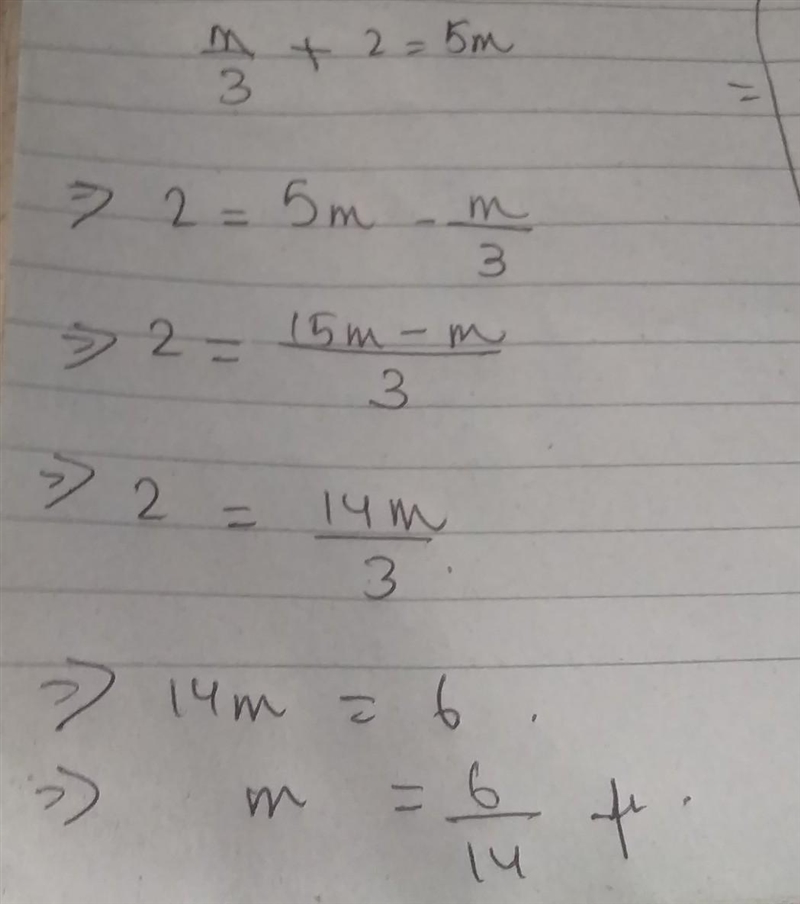 m/3 + 2 = 5m
=
⇒ 2 = 5m - m/3
⇒ 2 = 15m - m/3
⇒ 2 = 14m/3.
⇒ 14m = 6.
⇒ m = 6/14